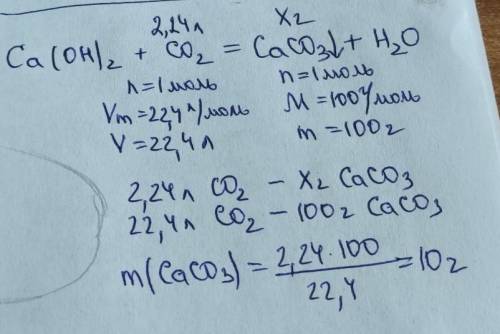 2,24л        Xг
Ca(OH)₂ + CO₂ = CaCO₃↓ + H₂O
n=1моль        n=1моль
Vm=22,4 л/моль        M=100г/моль
V=22,4л        m=100г
2,24л CO₂ – Xг CaCO₃
22,4л CO₂ – 100г CaCO₃
m(CaCO₃) = 2,24·100 / 22,4 = 10г